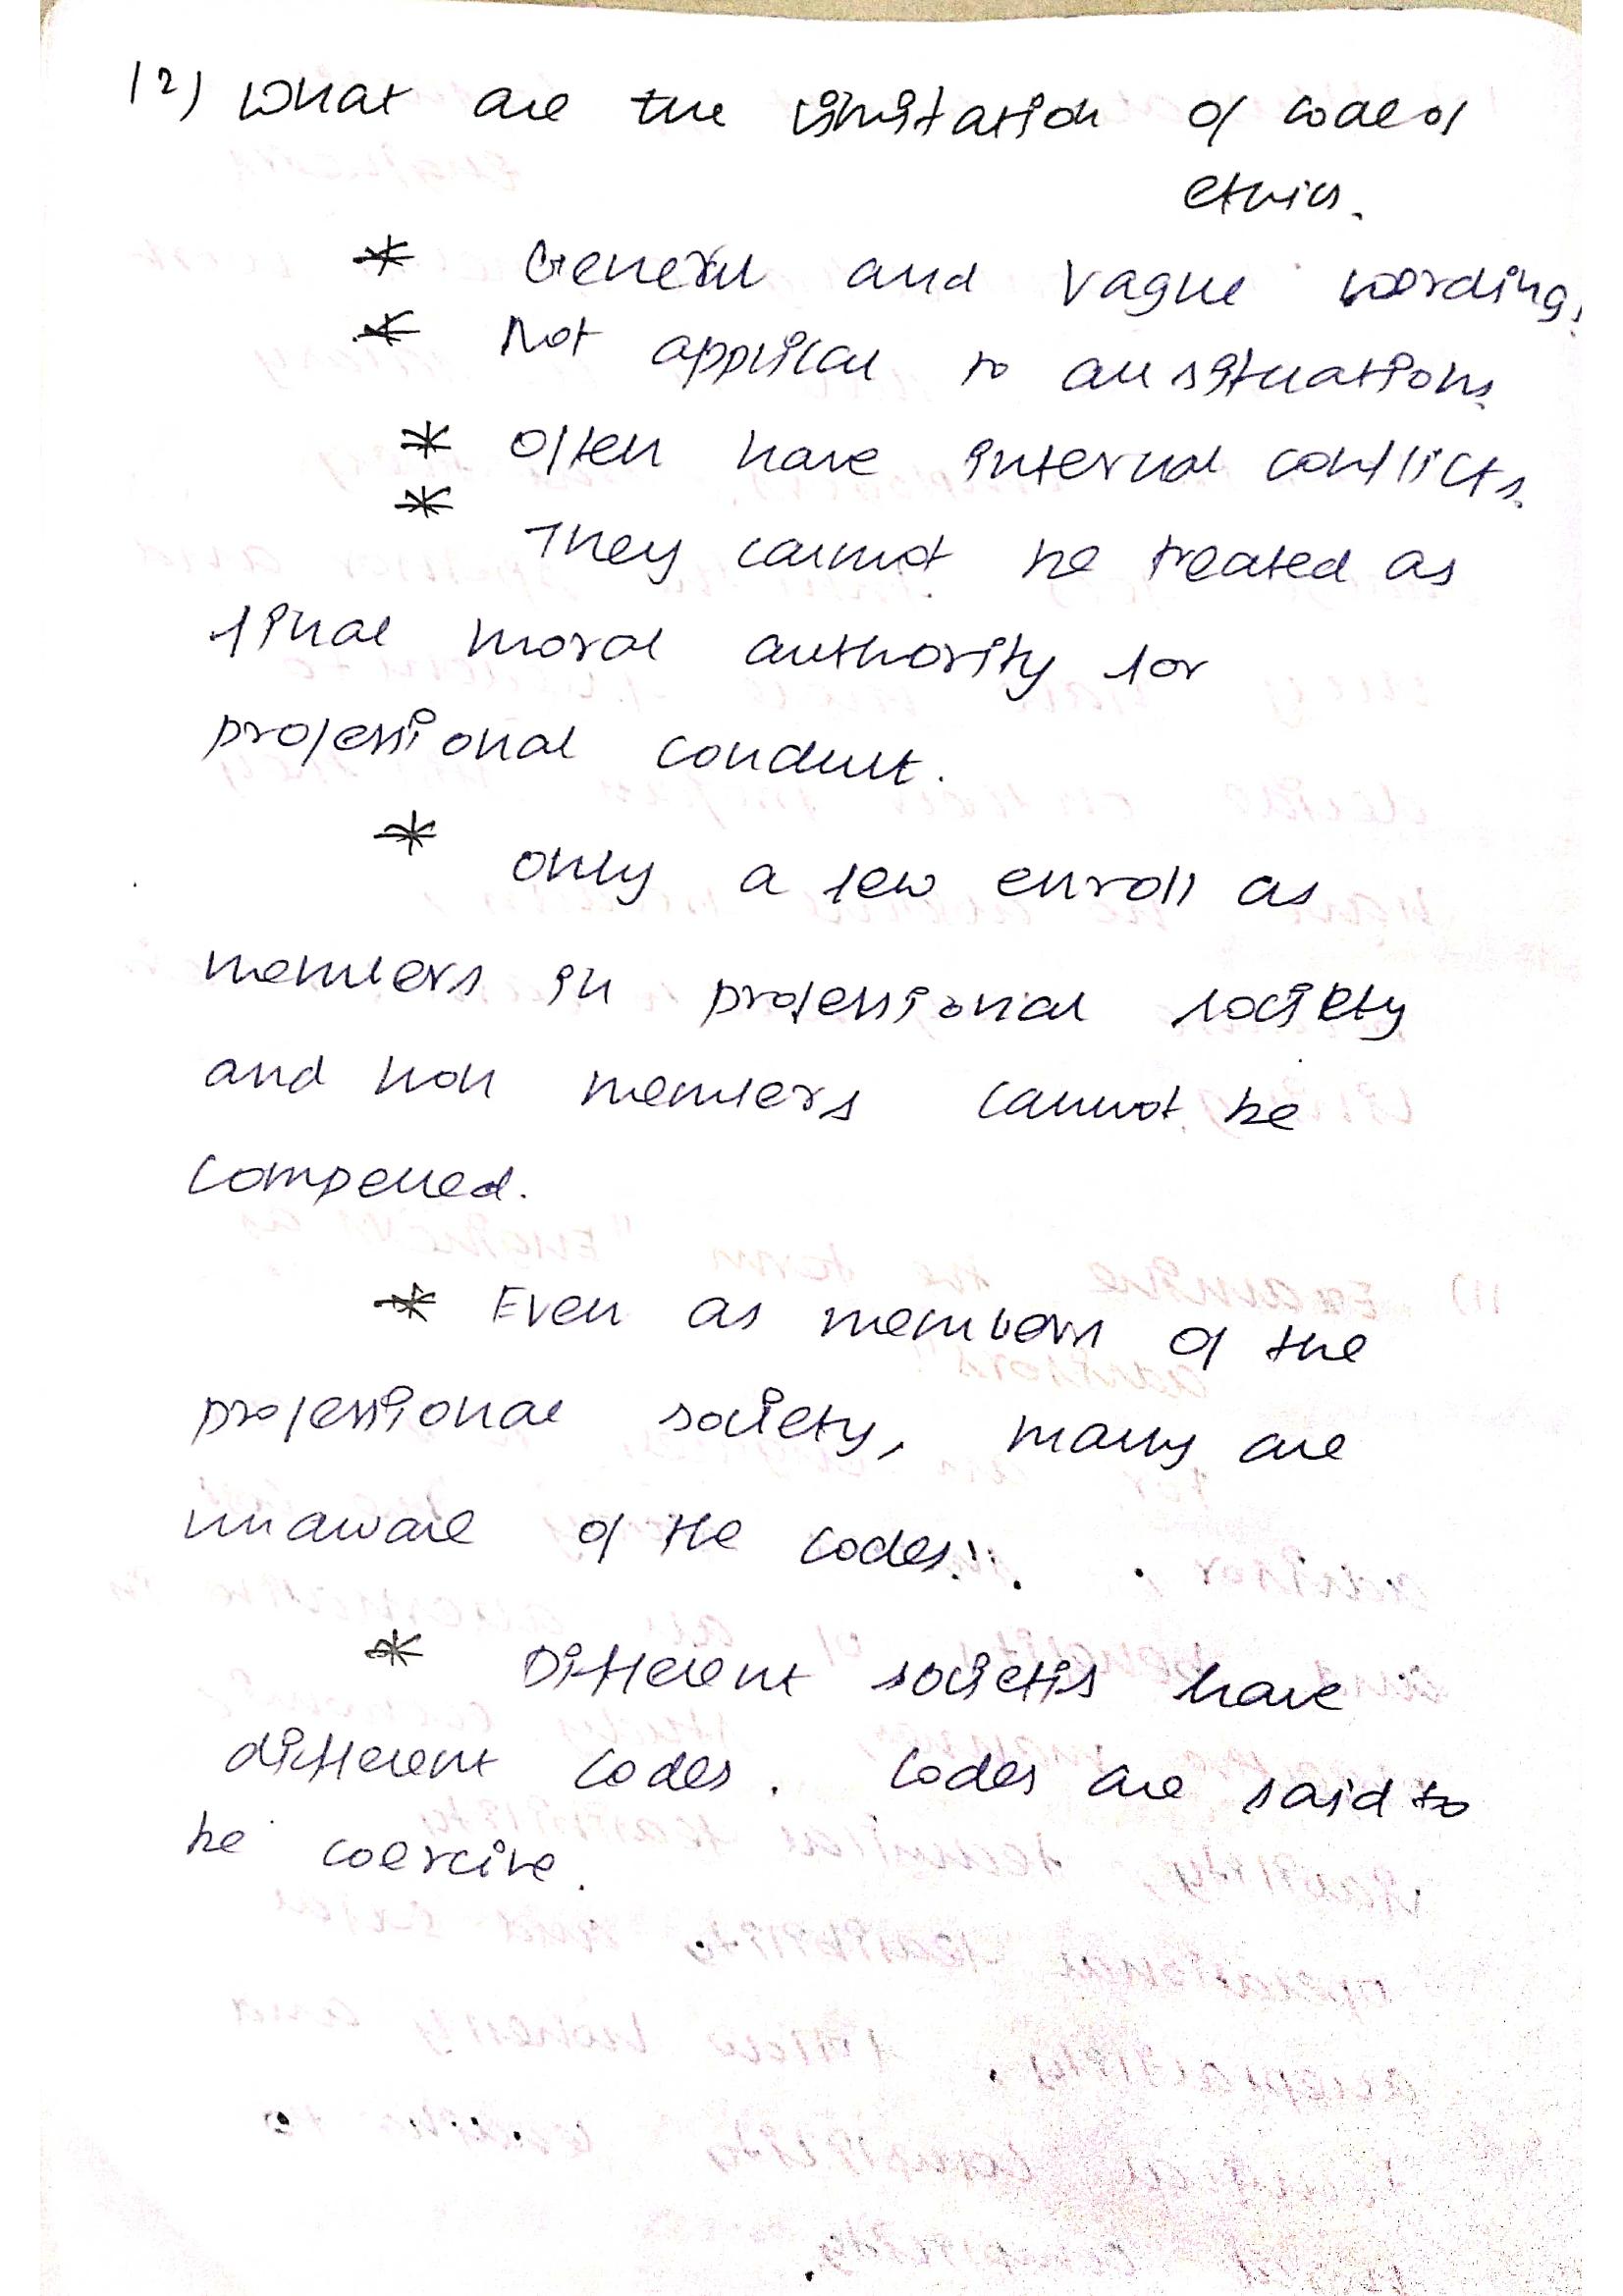 12) What are the limitation of code of
ethics.
* General and vague wording.
* Not applical to all situations.
* Often have internal conflicts.
*
They cannot be treated as
final moral authority for
professional conduct.
* only a few enroll as
members in professional society
and non members cannot be
compelled.
* Even as members of the
professional society, many are
unaware of the codes.
* Different societis have
different codes. Codes are said to
be coercive.